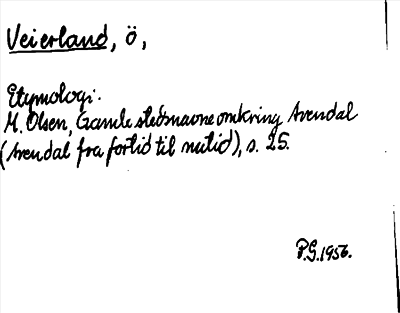 Veierland, ö,
Etymologi:
M. Olsen, Gamle stedsnavne omkring Arendal
(Arendal fra fortid til nutid), s. 25.
P.G. 1956.